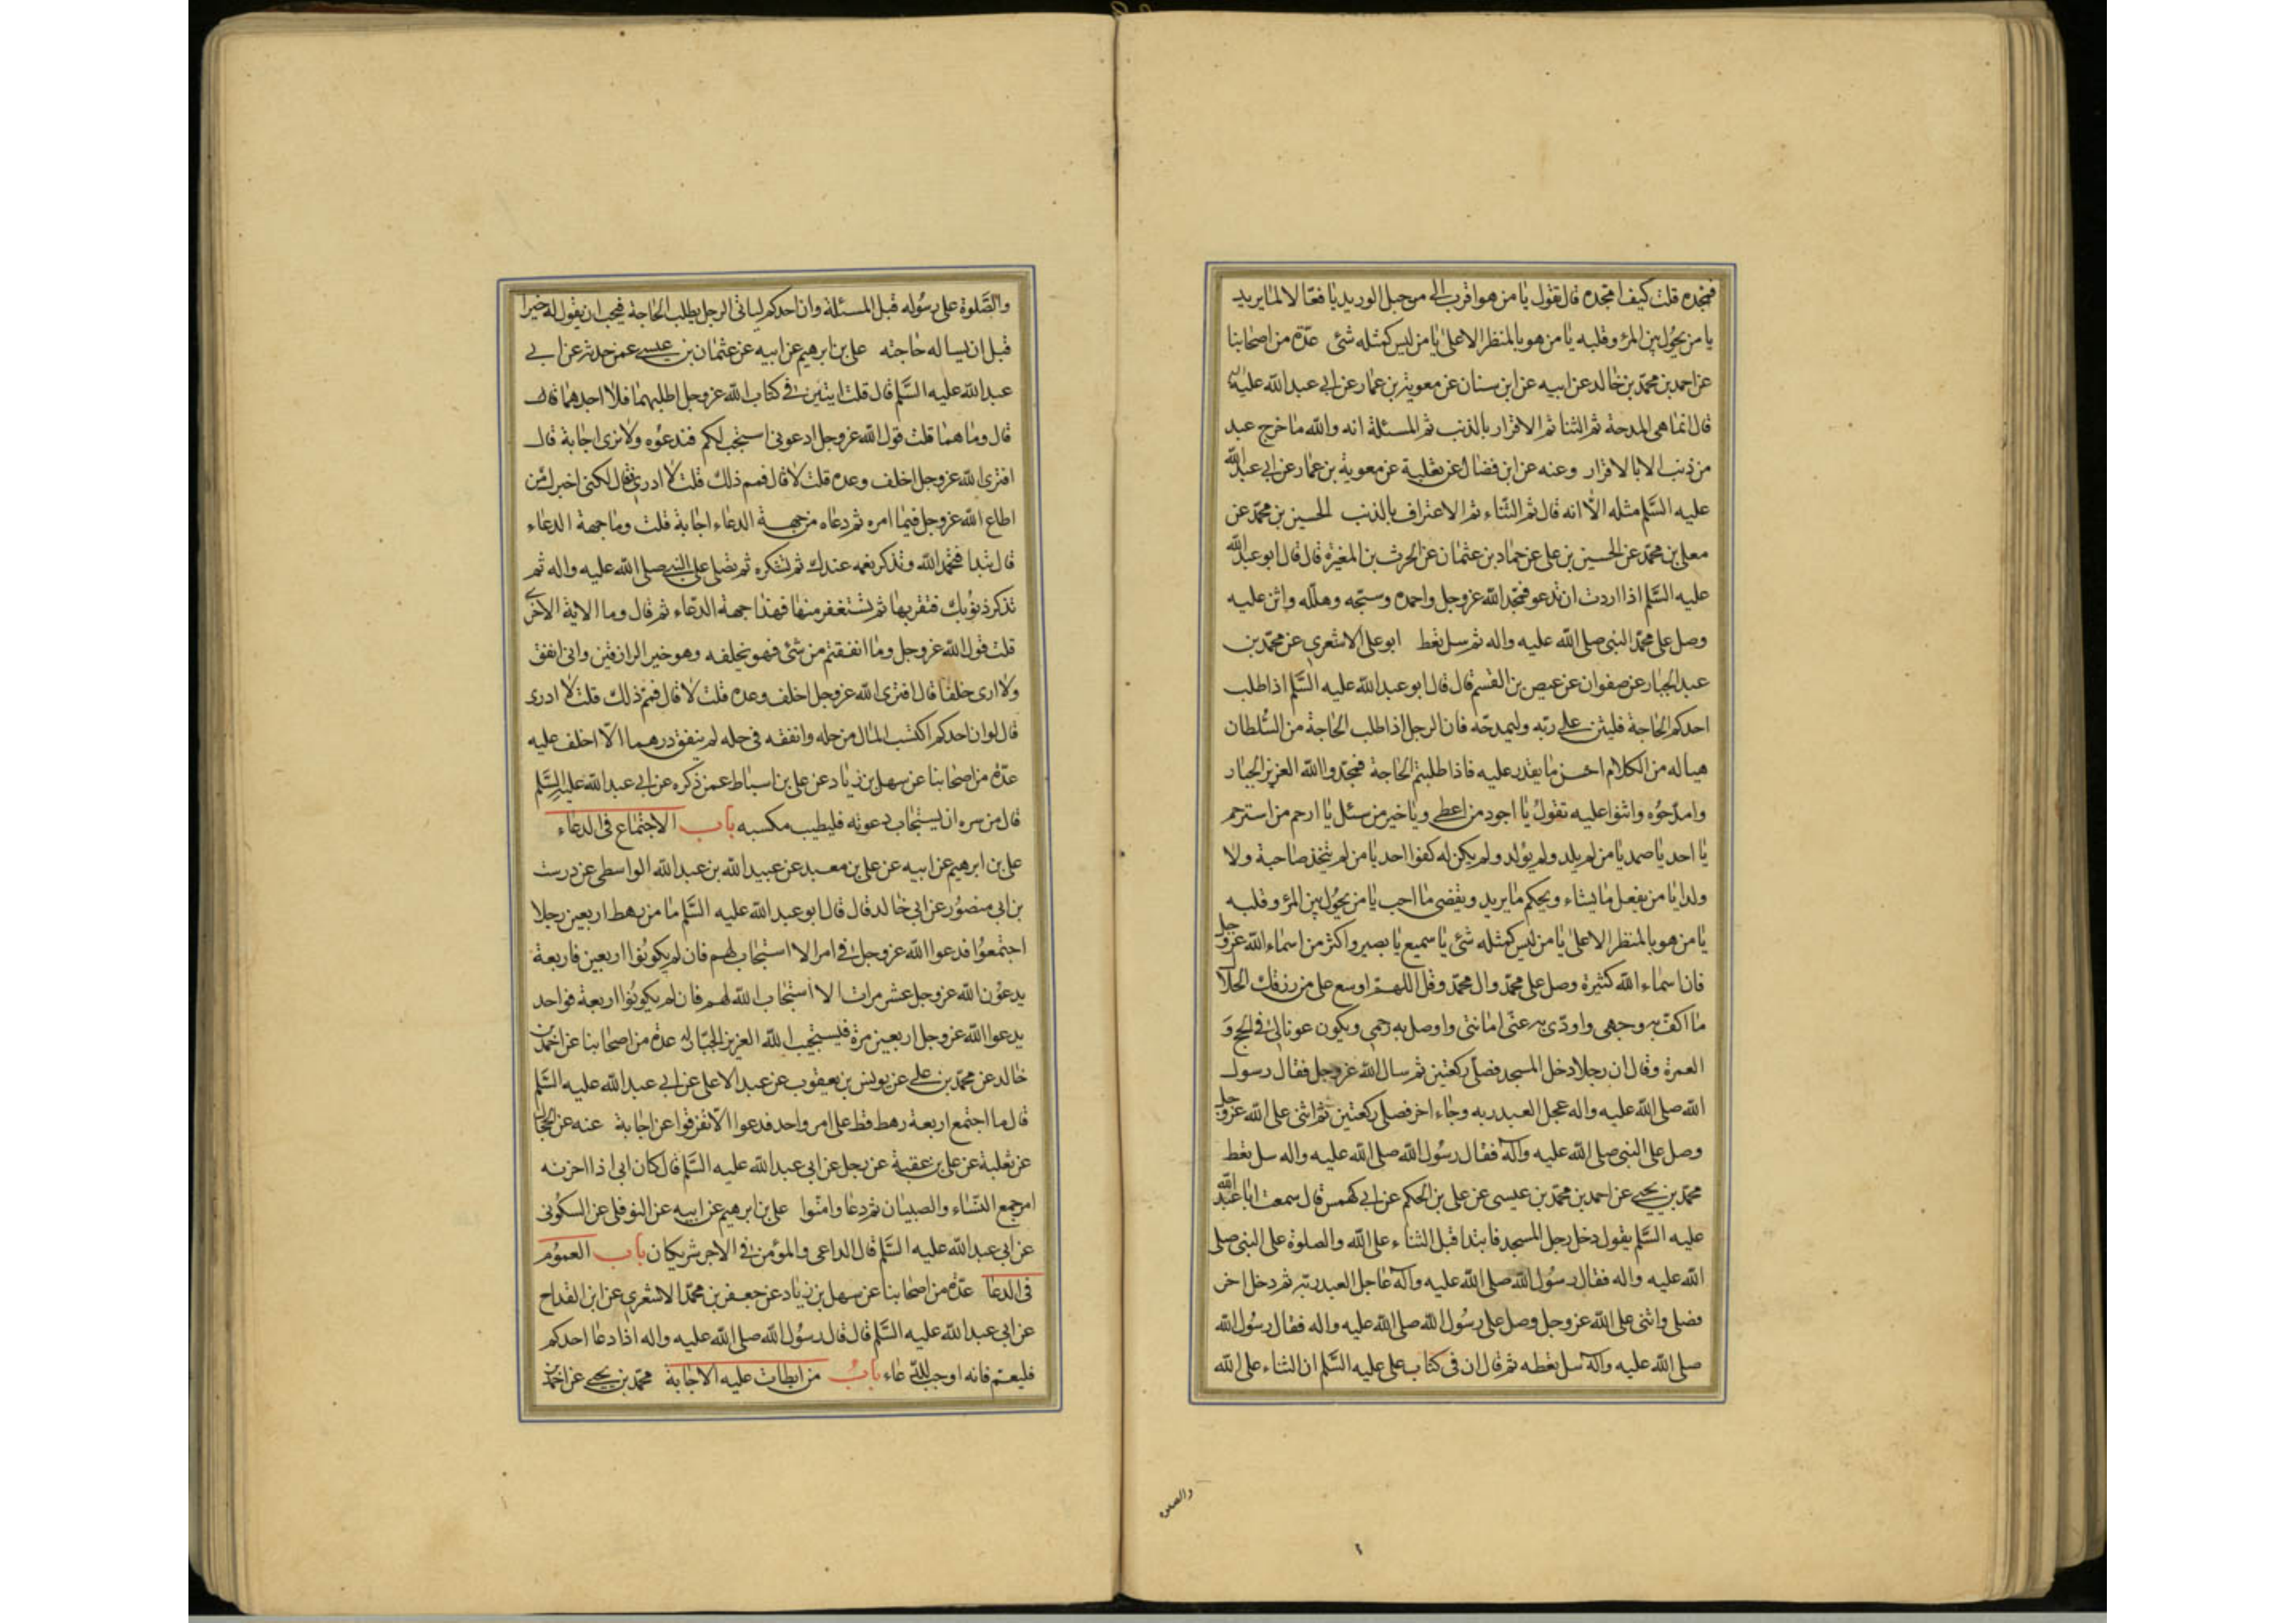 فمجده قلت كيف امجده قال تقول يا من هو اقرب الي من حبل الوريد يا فعالا لما يريد
يا من يحول بين المرء وقلبه يا من هو بالمنظر الاعلى يا من ليس كمثله شئ عدة من اصحابنا
عن احمد بن محمد بن خالد عن ابيه عن ابن سنان عن معوية بن عمار عن ابي عبد الله عليه
قال انما هي المدحة ثم الثنا ثم الاقرار بالذنب ثم المسئلة انه والله ما خرج عبد
من ذنب الا بالاقرار وعنه عن ابن فضال عن ثعلبة عن معوية بن عمار عن ابي عبد الله
عليه السلم مثله الا انه قال ثم الثناء ثم الاعتراف بالذنب الحسين بن محمد عن
معلى بن محمد عن الحسين بن علي عن حماد بن عثمان عن الحرث بن المغيرة قال قال ابو عبد الله
عليه السلم اذا اردت ان تدعو فمجد الله عز وجل واحمده وسبحه وهلله واثن عليه
وصل على محمد النبي صلى الله عليه واله ثم سل تعط ابو علي الاشعري عن محمد بن
عبد الجبار عن صفوان عن عيص بن القسم قال قال ابو عبد الله عليه السلم اذا طلب
احدكم الحاجة فليثن على ربه وليمدحه فان الرجل اذا طلب الحاجة من السلطان
هيا له من الكلام احسن ما يقدر عليه فاذا طلبتم الحاجة فمجدوا الله العزيز الجبار
وامدحوه واثنوا عليه تقول يا اجود من اعطى ويا خير من سئل يا ارحم من استرحم
يا احد يا صمد يا من لم يلد ولم يولد ولم يكن له كفوا احد يا من لم يتخذ صاحبة ولا
ولدا يا من يفعل ما يشاء ويحكم ما يريد ويقضي ما احب يا من يحول بين المرء وقلبه
يا من هو بالمنظر الاعلى يا من ليس كمثله شئ يا سميع يا بصير واكثر من اسماء الله عز وجل
فان اسماء الله كثيرة وصل على محمد وال محمد وقل اللهم اوسع علي من رزقك الحلال
ما اكف به وجهي واودي به عني امانتي واوصل به رحمي ويكون عونا لي في الحج و
العمرة وقال ان رجلا دخل المسجد فصلى ركعتين ثم سال الله عز وجل فقال رسول
الله صلى الله عليه واله عجل العبد ربه وجاء اخر فصلى ركعتين ثم اثنى على الله عز وجل
وصل على النبي صلى الله عليه واله فقال رسول الله صلى الله عليه واله سل تعط
محمد بن يحيى عن احمد بن محمد بن عيسى عن علي بن الحكم عن ابي كهمس قال سمعت ابا عبد الله
عليه السلم يقول دخل رجل المسجد فابتدا قبل الثناء على الله والصلوة على النبي صلى
الله عليه واله فقال رسول الله صلى الله عليه واله عاجل العبد ربه ثم دخل اخر
فصلى واثنى على الله عز وجل وصل على رسول الله صلى الله عليه واله فقال رسول الله
صلى الله عليه واله سل تعطه ثم قال ان في كتاب علي عليه السلم ان الثناء على الله
والصلوة
والصلوة على رسوله قبل المسئلة وان احدكم لياتي الرجل يطلب الحاجة فيحب ان يقول له خيرا
قبل ان يساله حاجته علي بن ابرهيم عن ابيه عن عثمان بن عيسى عمن حدثه عن ابي
عبد الله عليه السلم قال قلت ايتين في كتاب الله عز وجل اطلبهما فلا اجدهما قال
قال وما هما قلت قول الله عز وجل ادعوني استجب لكم فندعوه ولا نرى اجابة قال
افترى الله عز وجل اخلف وعده قلت لا قال فمم ذلك قلت لا ادري فقال لكني اخبرك من
اطاع الله عز وجل فيما امره ثم دعاه من جهة الدعاء اجابة قلت وما جهة الدعاء
قال تبدا فتحمد الله وتذكر نعمه عندك ثم تشكره ثم تصلي على النبي صلى الله عليه واله ثم
تذكر ذنوبك فتقر بها ثم تستغفر منها فهذا جهة الدعاء ثم قال وما الاية الاخرى
قلت قول الله عز وجل وما انفقتم من شئ فهو يخلفه وهو خير الرازقين واني انفق
ولا ارى خلفا قال افترى الله عز وجل اخلف وعده قلت لا قال فمم ذلك قلت لا ادري
قال لو ان احدكم اكتسب المال من حله وانفقه في حله لم ينفق درهما الا اخلف عليه
عدة من اصحابنا عن سهل بن زياد عن علي بن اسباط عمن ذكره عن ابي عبد الله عليه السلم
قال من سره ان يستجاب دعوته فليطيب مكسبه باب الاجتماع في الدعاء
علي بن ابرهيم عن ابيه عن علي بن معبد عن عبيد الله بن عبد الله الواسطي عن درست
بن ابي منصور عن ابي خالد قال قال ابو عبد الله عليه السلم ما من رهط اربعين رجلا
اجتمعوا فدعوا الله عز وجل في امر الا استجاب لهم فان لم يكونوا اربعين فاربعة
يدعون الله عز وجل عشر مرات الا استجاب الله لهم فان لم يكونوا اربعة فواحد
يدعوا الله عز وجل اربعين مرة فيستجيب الله العزيز الجبار له عدة من اصحابنا عن احمد بن
خالد عن محمد بن علي عن يونس بن يعقوب عن عبد الاعلى عن ابي عبد الله عليه السلم
قال ما اجتمع اربعة رهط قط على امر واحد فدعوا الا تفرقوا عن اجابة عنه عن الحجال
عن ثعلبة عن علي بن عقبة عن رجل عن ابي عبد الله عليه السلم قال كان ابي اذا احزنه
امر جمع النساء والصبيان ثم دعا وامنوا علي بن ابرهيم عن ابيه عن النوفلي عن السكوني
عن ابي عبد الله عليه السلم قال الداعي والمؤمن في الاجر شريكان باب العموم
في الدعا عدة من اصحابنا عن سهل بن زياد عن جعفر بن محمد الاشعري عن ابن القداح
عن ابي عبد الله عليه السلم قال قال رسول الله صلى الله عليه واله اذا دعا احدكم
فليعم فانه اوجب للدعاء باب من ابطات عليه الاجابة محمد بن يحيى عن احمد